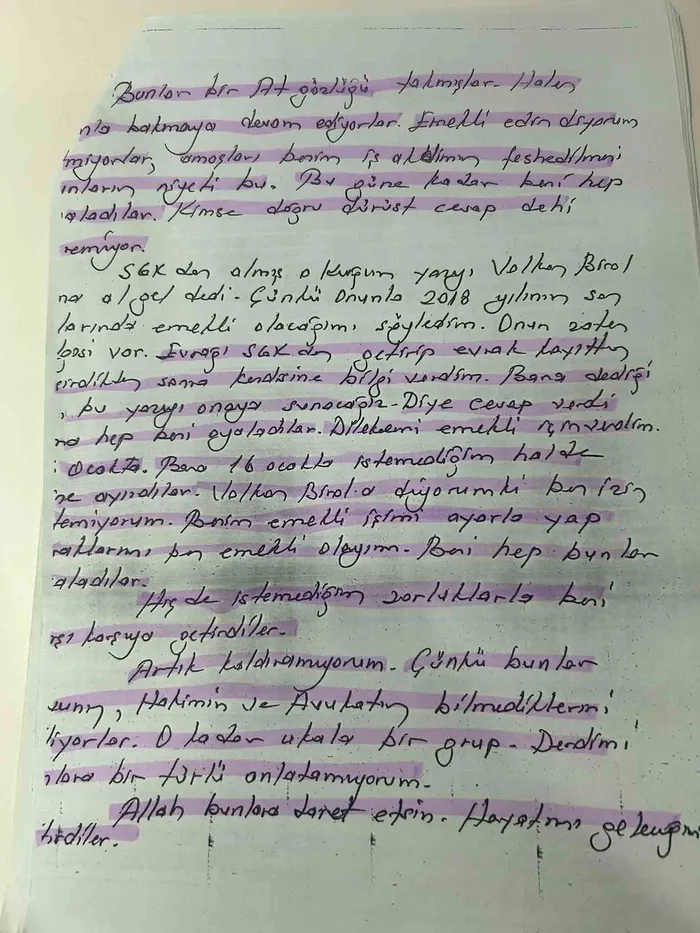 Bunlar bir At gözlüğü takmışlar. Halen
nla bakmaya devam ediyorlar. Emekli edin diyorum
miyorlar, amaçları benim iş akdimin feshedilmesi
nların niyeti bu. Bu güne kadar beni hep
aladılar. Kimse doğru dürüst cevap dehi
remiyor.
SGK dan almış olduğum yazıyı Volkan Birol
na al gel dedi. Çünkü Onunla 2018 yılının son
larında emekli olacağımı söyledim. Onun zaten
lgisi var. Evrağı SGK dan getirip evrak kayıttan
çirdikten sonra kendisine bilgi verdim. Bana dediği
, bu yazıyı onaya sunacağız. Diye cevap verdi
na hep beni oyaladılar. Dilekçemi emekli için verdim.
i Ocakta. Bana 16 ocakta istemediğim halde
ne ayırdılar. Volkan Birol a diyorumki ben izin
temiyorum. Benim emekli işimi ayarla yap
raklarımı ben emekli olayım. Beni hep bunlar
aladılar.
Hiç de istemediğim zorluklarla beni
rşı karşıya getirdiler.
Artık kaldıramıyorum. Çünkü bunlar
, Hakimin ve Avukatın bilmediklerini
liyorlar. O kadar ukala bir grup. Derdimi
lara bir türlü anlatamıyorum.
Allah bunlara lanet etsin. Hayatımı
tirdiler.